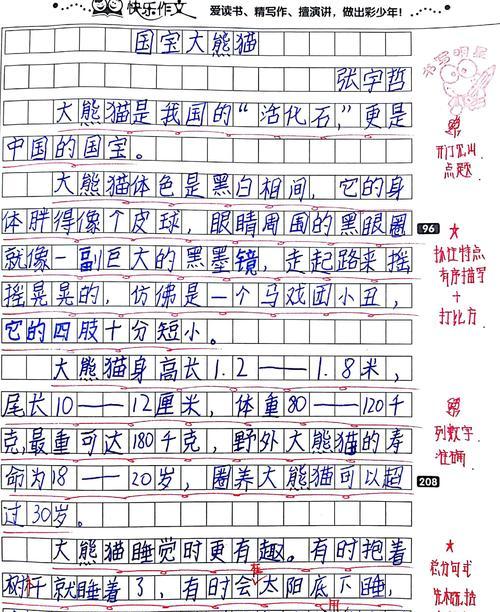 快乐作文
爱读书、精写作、擅演讲，做出彩少年！
国宝大熊猫
张宇哲
书写明星
大熊猫是我国的“活化石，”更是
中国的国宝。
开门见山
点题
大熊猫体色是黑白相间，它的身
体胖得像个皮球，眼睛周围的黑眼圈
96
就像一副巨大的黑墨镜，走起路来摇
摇晃晃的，仿佛是一个马戏团小丑，
它的四肢十分短小。
抓住特点
有序描写
+
打比方
大熊猫身高长1.2——1.8米，
尾长10——12厘米，体重80——120千
克,最重可达180千克，野外大熊猫的寿
命为18——20岁，圈养大熊猫可以超
208
过30岁。
列数字
准确
大熊猫睡觉时更有趣。有时抱着
树干就睡着了，有时会在太阳底下睡，
总分句式
用